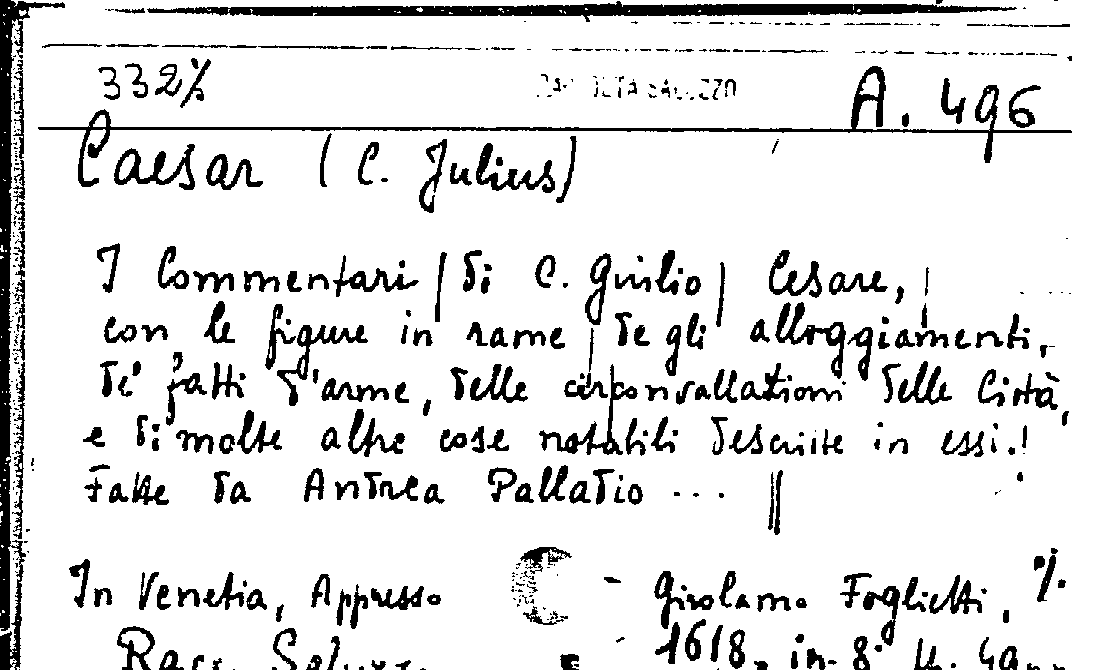 332% RACCOLTA SALUZZO A. 496
Caesar (C. Julius)
I Commentari | di C. Giulio | Cesare, |
con le figure in rame | de gli alloggiamenti,
de' fatti d'arme, delle circonvallationi delle Città,
e di molte altre cose notabili descritte in essi.!
Fatte da Andrea Palladio ... ||
In Venetia, Appresso - Girolamo Foglietti, %.
Racc. Saluzzo 1618. in-8°